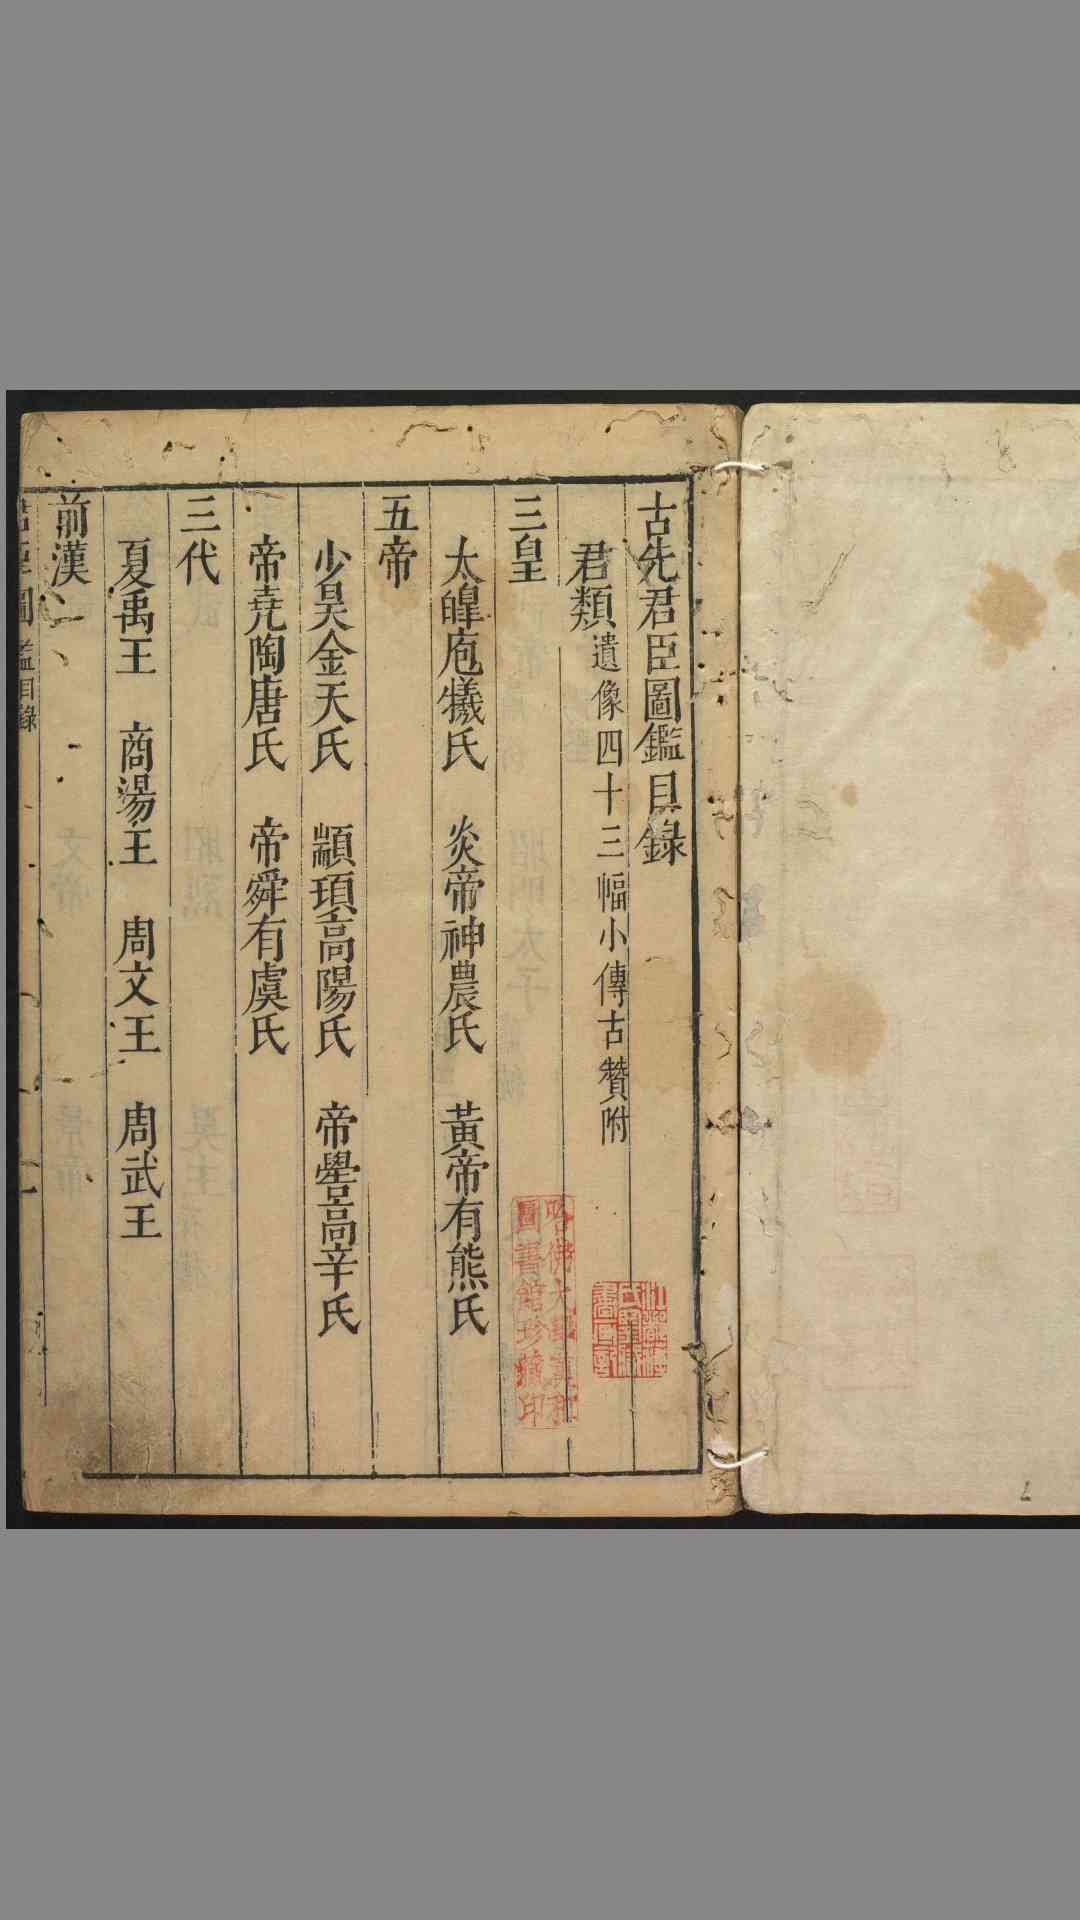 古先君臣圖鑑目錄
君類 遺像四十三幅小傳古贊附
三皇
太皡庖犧氏 炎帝神農氏 黃帝有熊氏
五帝
少昊金天氏 顓頊高陽氏 帝嚳高辛氏
帝堯陶唐氏 帝舜有虞氏
三代
夏禹王 商湯王 周文王 周武王
前漢
君臣圖鑑目錄
哈佛大學漢和
圖書館珍藏印